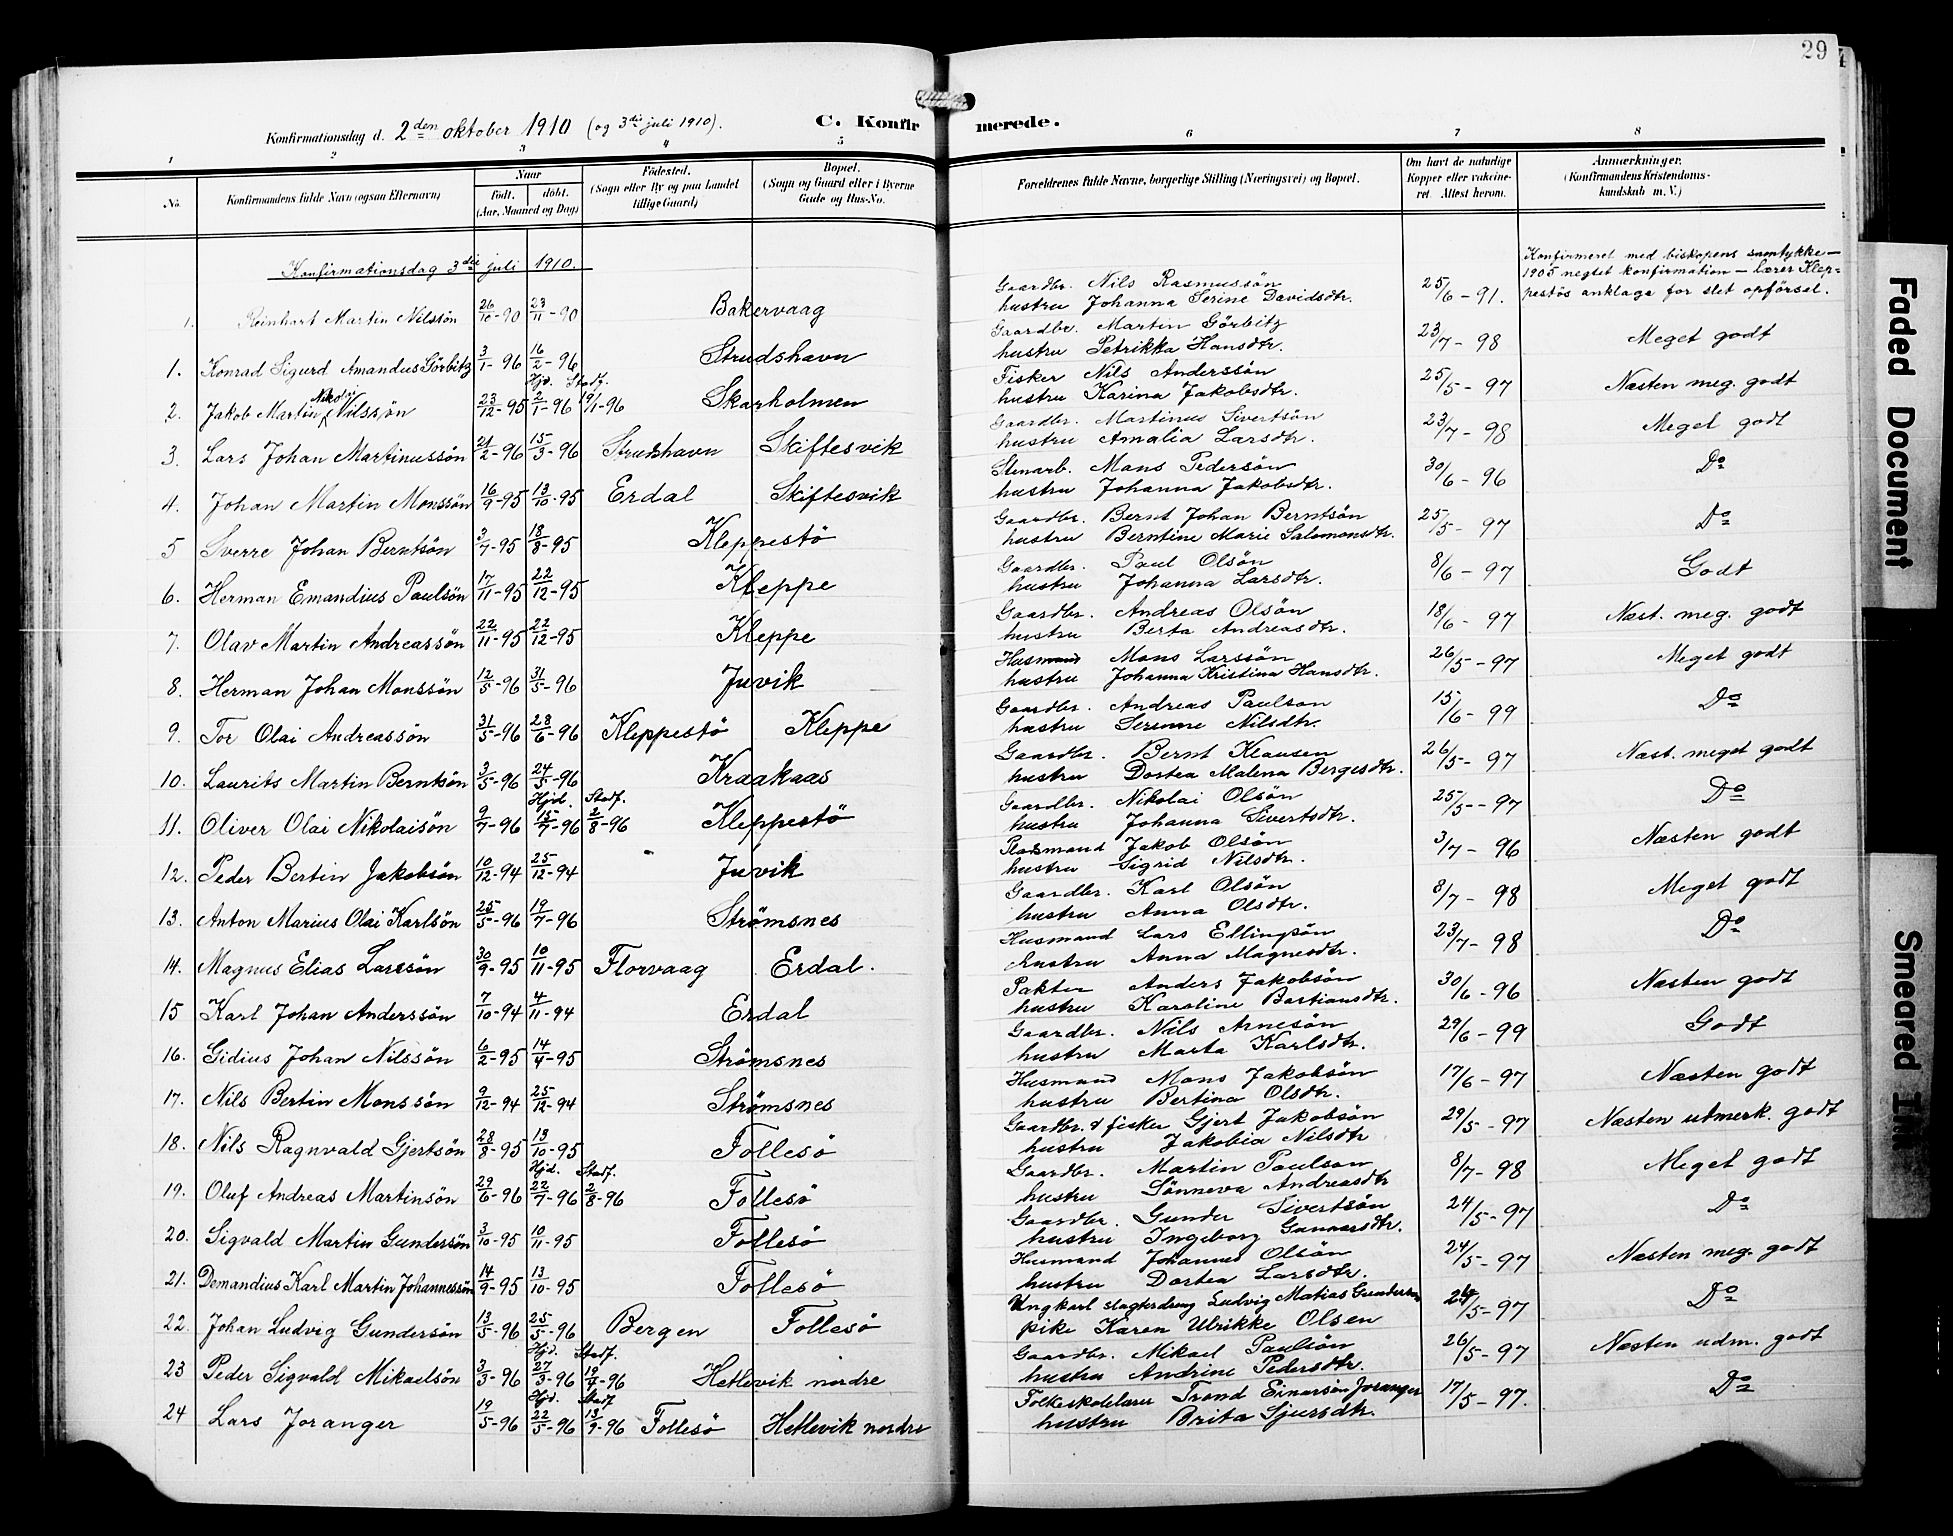 29
Konfirmationsdag d. 2den oktober 1910 (og 3die juli 1910).
C. Konfirmerede.
1 2 3 4 5 6 7 8
No.
Konfirmandens fulde Navn (ogsaa Efternavn)
Naar
født. døbt.
(Aar, Maaned og Dag)
Fødested.
(Sogn eller By og paa Landet
tillige Gaard)
Bopæl.
(Sogn og Gaard eller i Byerne
Gade og Hus-No.
Forældrenes fulde Navne, borgerlige Stilling (Næringsvei) og Bopæl.
Om havt de naturlige
Kopper eller vakcine-
ret Attest herom.
Anmærkninger.
(Konfirmandens Kristendoms-
kundskab m. V.)
Konfirmationsdag 3die juli 1910.
1. Reinhart Martin Nilssön 26/10-90 23/11-90 Bakervaag
Gaardbr. Nils Rasmussön
hustru Johanna Serine Davidsdtr. 25/6-91.
Konfirmeret med biskopens samtykke—
1905 negtet konfirmation — lærer Klep-
pestös anklage for slet opförsel.
1. Konrad Sigurd Amandus Görbitz 3/1-96 16/2-96 Strudshavn
Gaardbr. Martin Görbitz
hustru Petrikka Hansdtr. 23/7-98 Meget godt
2. Jakob Martin Nikolai Nilssön 23/12-95 Hjd. 2/1-96 Stadf. 19/1-96 Skarholmen
Fisker Nils Anderssön
hustru Karina Jakobsdtr. 25/5-97 Næsten meg. godt
3. Lars Johan Martinussön 21/2-96 15/3-96 Strudshavn Skiftesvik
Gaardbr. Martinus Sivertsön
hustru Amalia Larsdtr. 23/7-98 Meget godt
4. Johan Martin Monssön 16/9-95 13/10-95 Erdal Skiftesvik
Stenarb. Mons Pedersön
hustru Johanna Jakobsdtr. 30/6-96 Do
5 Sverre Johan Berntsön 3/7-95 18/8-95 Kleppestö
Gaardbr. Bernt Johan Berntsön
hustru Berntine Marie Salomonsdtr. 25/5-97 Do
6. Herman Emandius Paulsön 17/11-95 22/12-95 Kleppe
Gaardbr. Paul Olsön
hustru Johanna Larsdtr. 8/6-97 Godt
7. Olav Martin Andreassön 22/11-95 22/12-95 Kleppe
Gaardbr. Andreas Olsön
hustru Berta Andreasdtr. 18/6-97 Næst. meg. godt
8. Herman Johan Monssön 12/5-96 31/5-96 Juvik
Husmand Mons Larssön
hustru Johanna Kristina Hansdtr. 26/5-97 Meget godt
9. Tor Olai Andreassön 31/5-96 28/6-96 Kleppestö Kleppe
Gaardbr. Andreas Paulson
hustru Serenne Nilsdtr. 15/6-99 Do
10. Laurits Martin Berntsön 3/5-96 24/5-96 Kraakaas
Gaardbr. Bernt Klausen
hustru Dortea Malena Bergesdtr. 26/5-97 Næst. meget godt
11. Oliver Olai Nikolaisön 9/7-96 Hjd. 15/7-96 Stadf. 2/8-96 Kleppestö
Gaardbr. Nikolai Olsön
hustru Johanna Sivertsdtr. 25/5-97 Do
12. Peder Bertin Jakobsön 10/12-94 25/12-94 Juvik
Pladsmand Jakob Olsön
hustru Sigrid Nilsdtr. 3/7-96 Næsten godt
13. Anton Marius Olai Karlsön 25/5-96 19/7-96 Strømsnes
Gaardbr. Karl Olsön
hustru Anna Olsdtr. 8/7-98 Meget godt
14. Magnus Elias Larssön 30/9-95 10/11-95 Florvaag Erdal.
Husmand Lars Ellingsön
hustru Anna Magnesdtr. 23/7-98 Do
15 Karl Johan Anderssön 7/10-94 4/11-94 Erdal
Pakter Anders Jakobsön
hustru Karoline Bastiansdtr. 30/6-96 Næsten godt
16. Gidius Johan Nilssön 6/2-95 14/4-95 Strømsnes
Gaardbr. Nils Arnesön
hustru Marta Karlsdtr. 29/6-99 Godt
17. Nils Bertin Monssön 9/12-94 25/12-94 Strømsnes
Husmand Mons Jakobsön
hustru Bertina Olsdtr. 17/6-97 Næsten godt
18. Nils Ragnvald Gjertsön 28/8-95 13/10-95 Follesö
Gaardbr. & fisker Gjert Jakobsön
hustru Jakobia Nilsdtr 29/5-97 Næsten utmerk. godt
19. Oluf Andreas Martinsön 29/6-96 Hjd. 22/7-96 Stadf. 2/8-96 Follesö
Gaardbr. Martin Paulson
hustru Sönneva Andreasdtr 8/7-98 Meget godt
20. Sigvald Martin Gundersön 3/10-95 10/11-95 Follesö
Gaardbr. Gunder Sivertsön
hustru Ingeborg Gunnarsdtr. 24/5-97 Do
21. Demandius Karl Martin Johannessön 14/9-95 13/10-95 Follesö
Husmand Johannes Olsön
hustru Dortea Larsdtr. 24/5-97 Næsten meg. godt
22. Johan Ludvig Gundersön 13/5-96 25/5-96 Bergen Follesö
Ungkarl slagterdreng Ludvig Matias Gundersen
pike Karen Ulrikke Olsen 24/5-97 Do
23 Peder Sigvald Mikaelsön 3/3-96 Hjd. 27/3-96 Stadf. 19/4-96 Hetlevik nordre
Gaardbr. Mikael Paulsön
hustru Andrine Pedersdtr. 26/5-97 Næsten udm. godt
24 Lars Joranger 19/5-96 Hjd. 22/5-96 Stadf 13/9-96 Follesö Hetlevik nordre
Folkeskolelærer Trond Einarsön Joranger
hustru Brita Sjursdtr. 17/5-97. Do
Faded Document
Smeared Ink